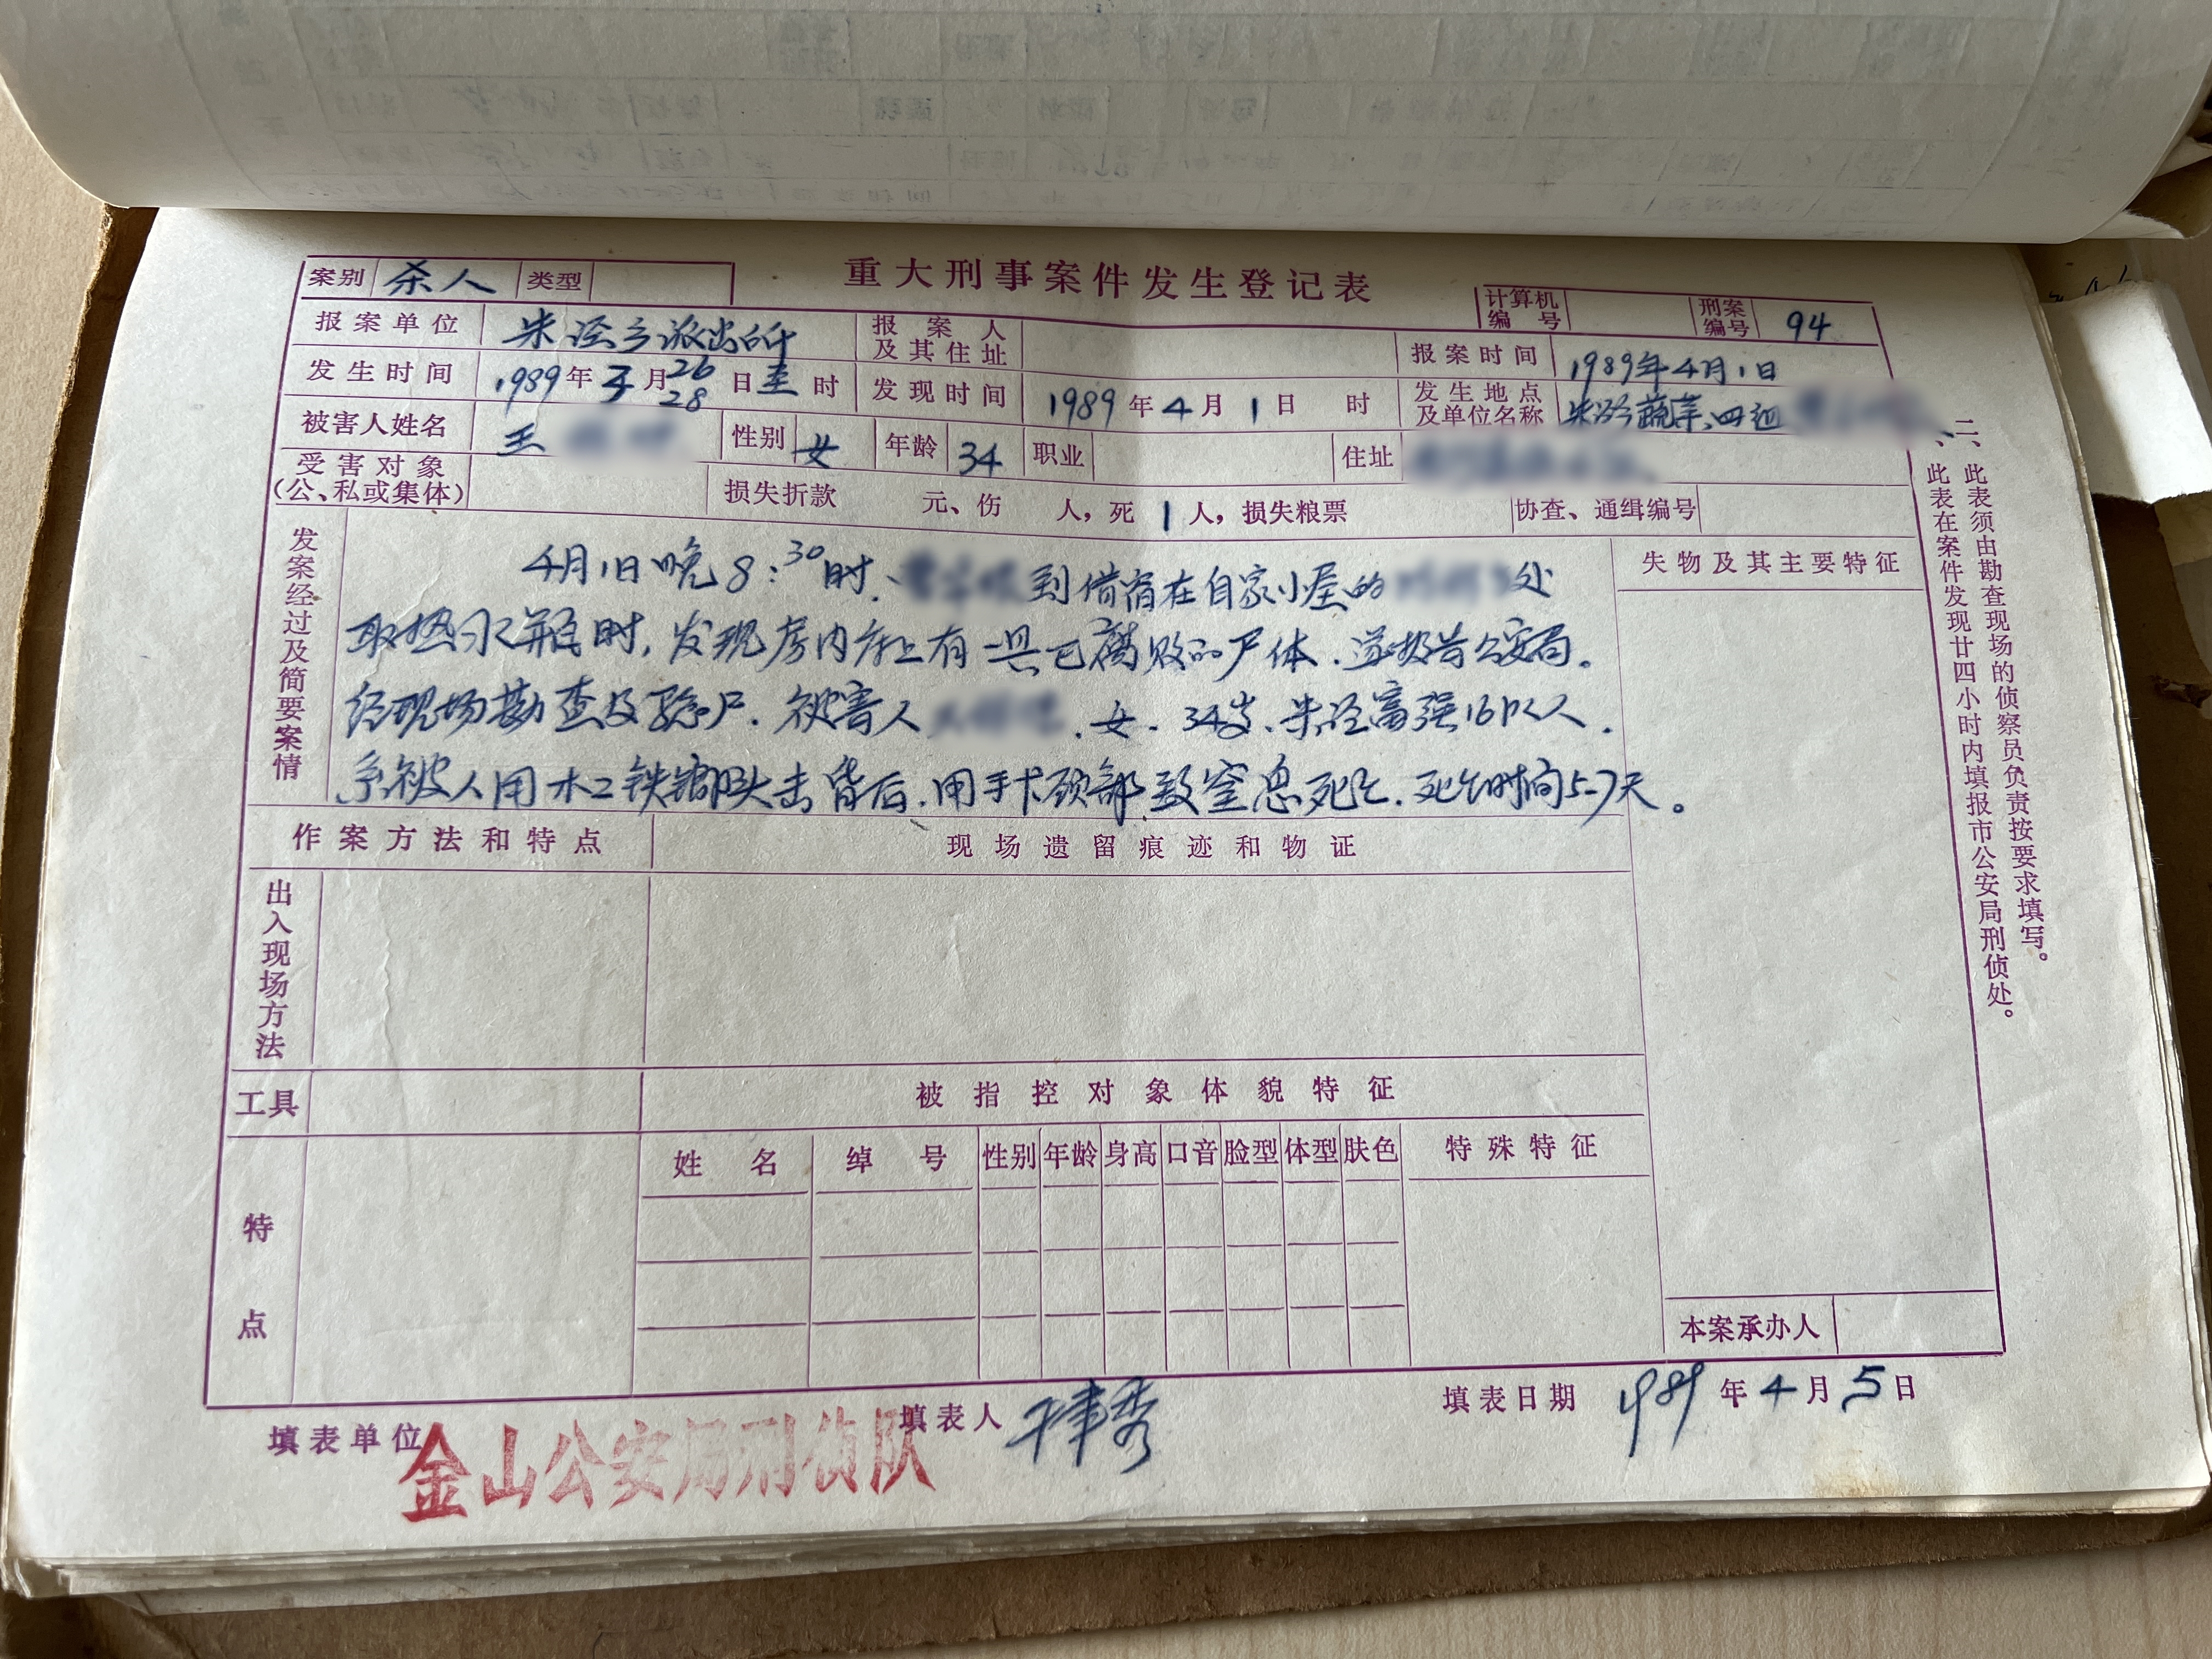 重大刑事案件发生登记表
案别 杀人 类型
计算机编号 刑案编号 94
报案单位 朱泾乡派出所 报案人及其住址 报案时间 1989年4月1日
发生时间 1989年3月26 28日 时 发现时间 1989年4月1日 时 发生地点及单位名称 朱泾蔬菜、四
被害人姓名 王 性别 女 年龄 34 职业 住址
受害对象(公、私或集体) 损失折款 元、伤 人,死 1 人,损失粮票 协查、通缉编号
发案经过及简要案情
4月1日晚8:30时、 到借宿在自家小屋的 处
取热水瓶时,发现房内床上有一具已腐败的尸体.遂报告公安局。
经现场勘查及验尸.被害人 .女.34岁、朱泾富强16队人.
系被人用木工铁榔头击昏后.用手卡颈部致窒息死亡.死亡时间5-7天。
失物及其主要特征
作案方法和特点 现场遗留痕迹和物证
出入现场方法
工具 被指控对象体貌特征
特点 姓名 绰号 性别 年龄 身高 口音 脸型 体型 肤色 特殊特征
本案承办人
填表单位 金山公安局刑侦队 填表人 填表日期 1989年4月5日
、此表在案件发现廿四小时内填报市公安局刑侦处。
二、此表须由勘查现场的侦察员负责按要求填写。